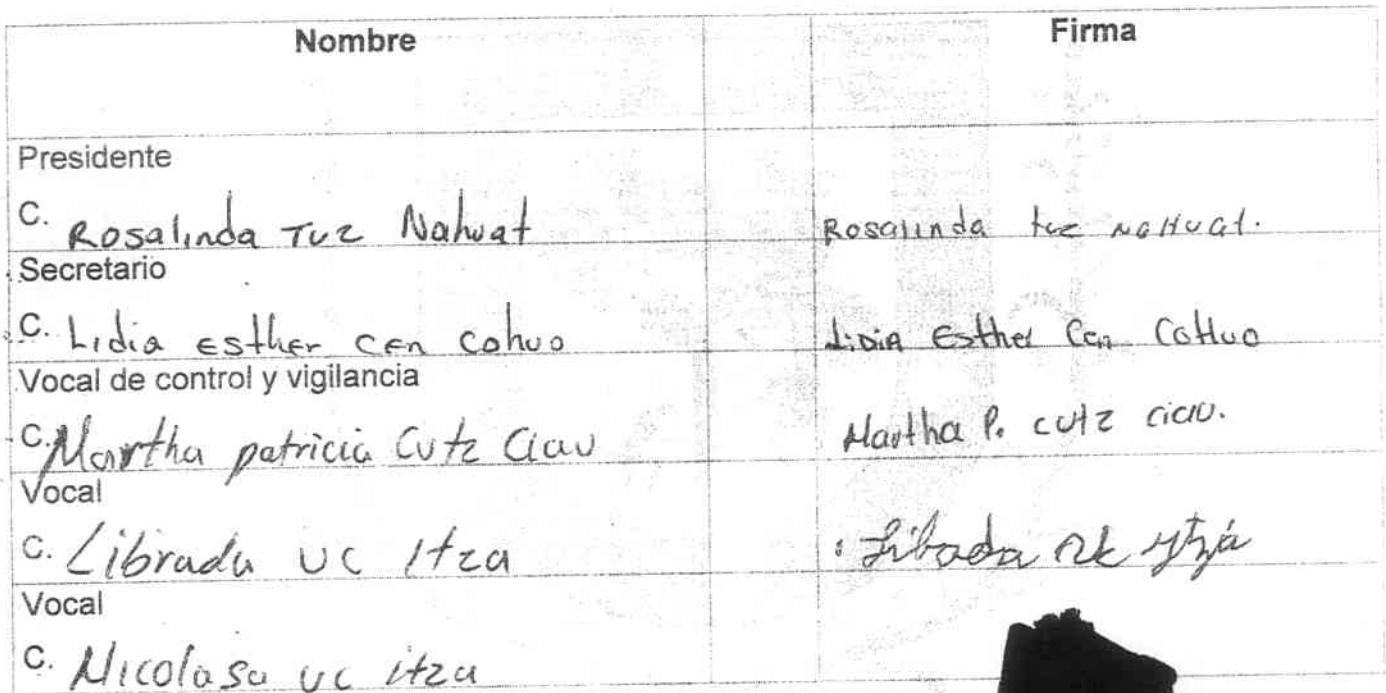 Nombre Firma
Presidente
C. Rosalinda Tuz Nahuat Rosalinda tuz NaHuat.
Secretario
C. Lidia esther cen cohuo Lidia Esther Cen CoHuo
Vocal de control y vigilancia
C. Martha patricia Cutz Ciau Martha P. cutz ciau.
Vocal
C. Librada uc Itza Librada Uc ytzá
Vocal
C. Nicolasa uc itza